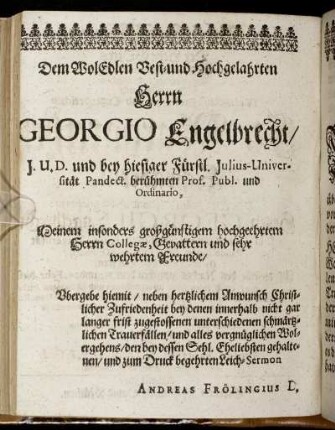 Dem WolEdlen Vest-und Hochgelahrten
Herrn
GEORGIO Engelbrecht/
J. U. D. und bey hiesiger Fürstl. Julius-Univer-
sität Pandect. berühmten Prof. Publ. und
Ordinario,
Meinem insonders großgünstigem hochgeehrtem
Herrn Collegæ, Gevattern und sehr
wehrtem Freunde/
Vbergebe hiemit/ neben hertzlichem Anwunsch Christ-
licher Zufriedenheit bey denen innerhalb nicht gar
langer frist zugestossenen unterschiedenen schmärtz-
lichen Trauerfällen/ und alles vergnüglichen Wol-
ergehens/ den bey dessen Sehl. Eheliebsten gehalte-
nen/ und zum Druck begehrten Leich-Sermon
ANDREAS FRÖLINGIUS D.